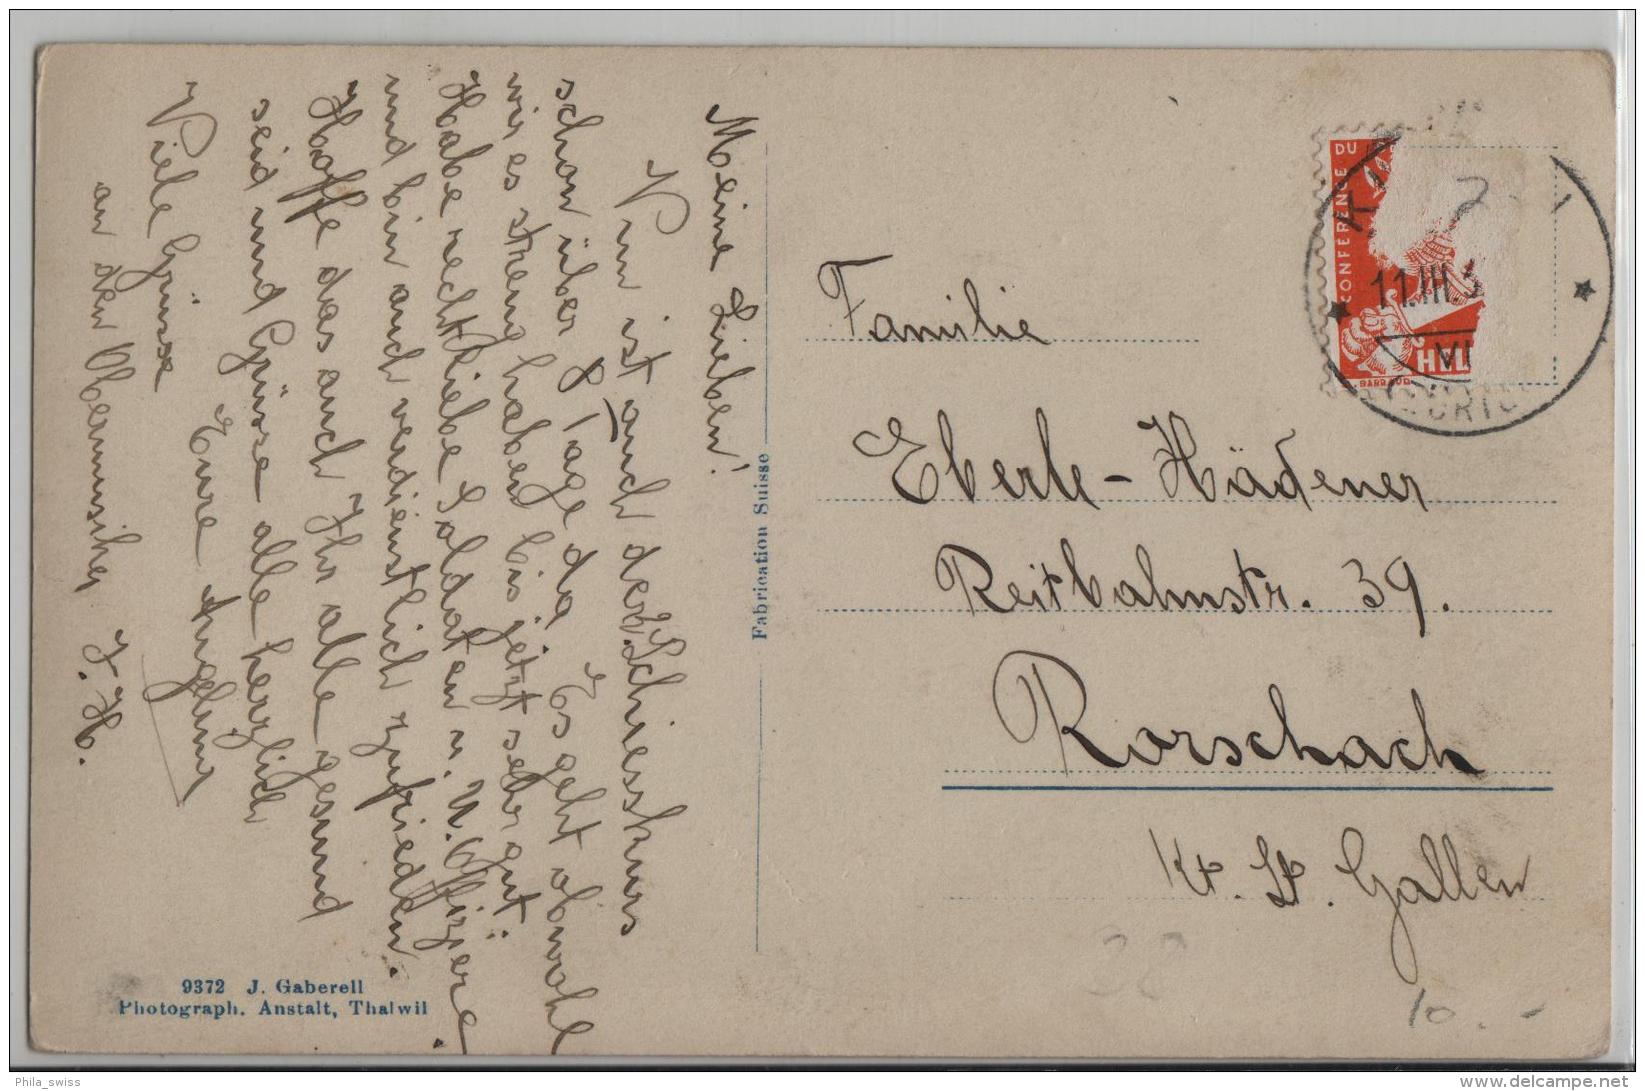 Meine Lieben!
Nun ist auch der Schiesskurs
schon über 8 Tage da. Es geht obwohl
wir es streng haben bis jetzt sehr gut.
Habe recht liebe Soldaten u. U. Offiziere
und bin auch verdienstlich zufrieden.
Hoffe das auch Ihr alle gesund
seid und Grüsse alle herzlich
Eure
Viele Grüsse
an den J. H.
9372 J. Gaberell
Photograph. Anstalt, Thalwil
Fabrication Suisse
CONFERENCE DU
HEL
BARRAUD
11.III.3
VI
Familie
Eberle-Hädener
Reitbahnstr. 39.
Rorschach
Kt. St. Gallen
38
10.-
Phila_swiss
www.delcampe.net